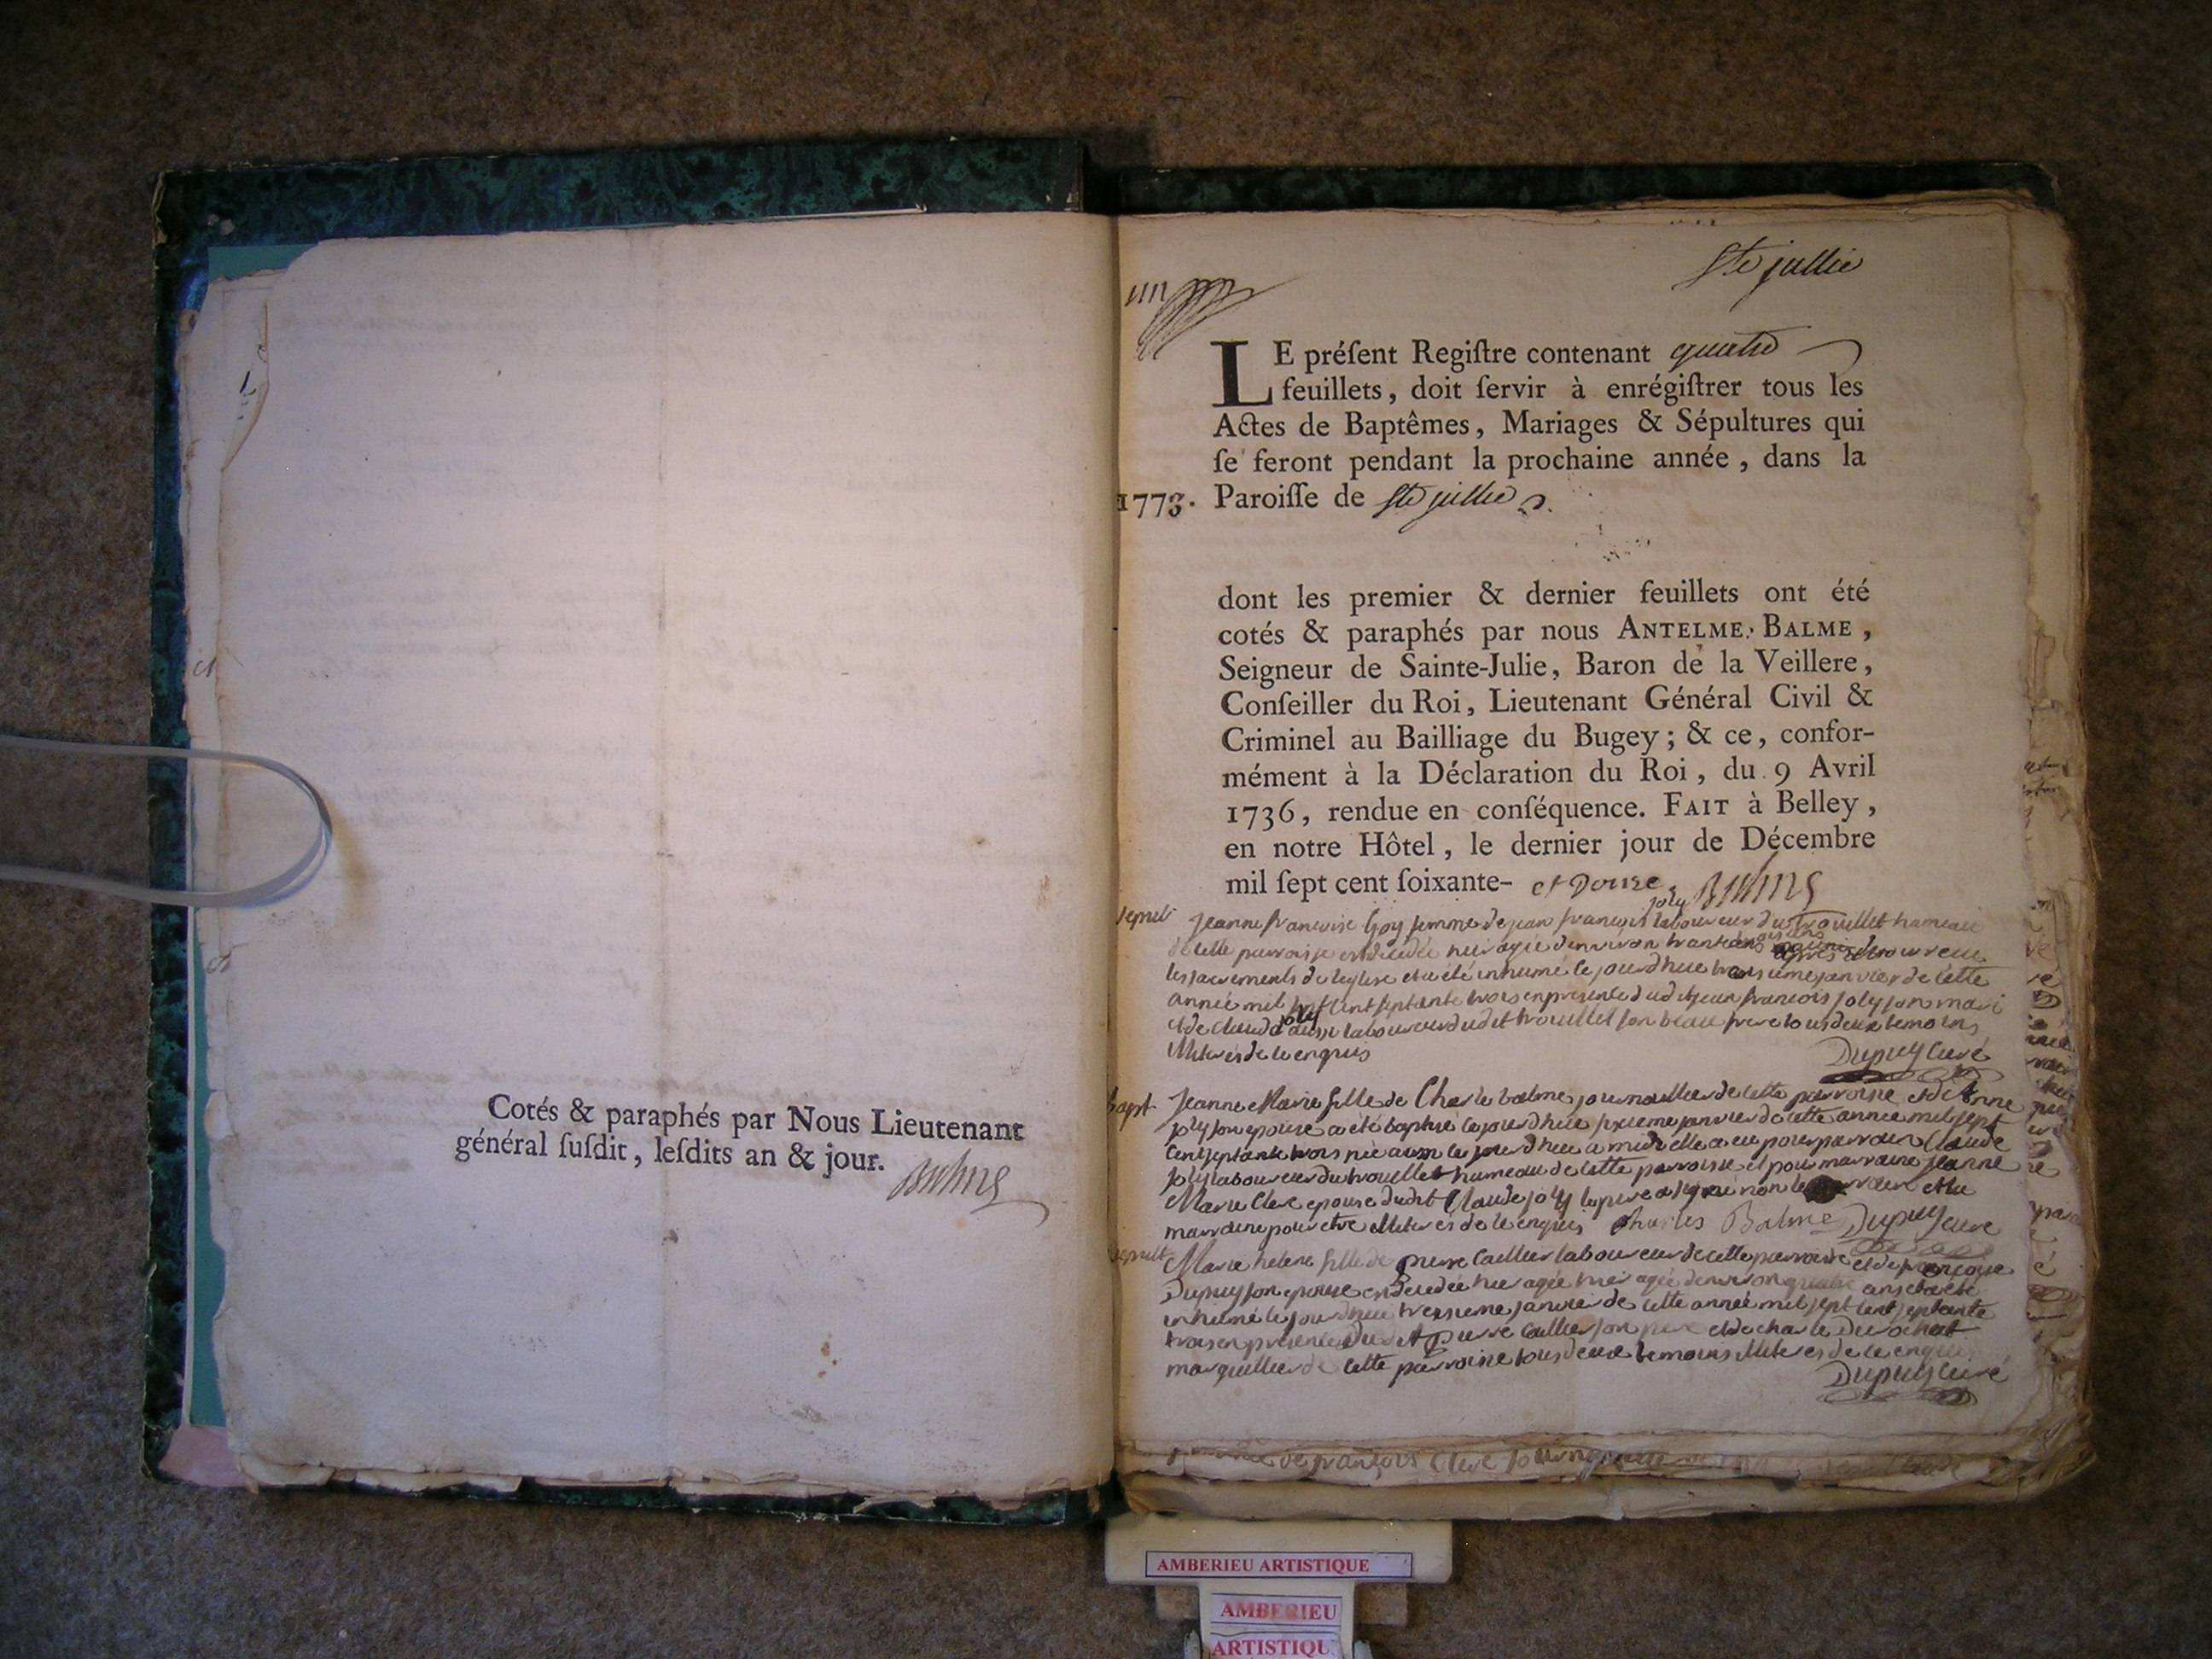 Cotés & paraphés par Nous Lieutenant
général ſuſdit, leſdits an & jour.
Balme
Ste jullie
un
LE préſent Regiſtre contenant quatre
feuillets, doit ſervir à enrégiſtrer tous les
Actes de Baptêmes, Mariages & Sépultures qui
ſe feront pendant la prochaine année, dans la
1773. Paroiſſe de Ste jullie
dont les premier & dernier feuillets ont été
cotés & paraphés par nous ANTELME BALME,
Seigneur de Sainte-Julie, Baron de la Veillere,
Conſeiller du Roi, Lieutenant Général Civil &
Criminel au Bailliage du Bugey; & ce, confor-
mément à la Déclaration du Roi, du 9 Avril
1736, rendue en conſéquence. FAIT à Belley,
en notre Hôtel, le dernier jour de Décembre
mil ſept cent ſoixante- et Douze. Balme
joly
Jeanne francoise Goy femme de jean francois laboureur du trouillet hameau
de cette parroisse est decedée hier agée denviron trante
les sacrements de leglise et a été inhumé ce jourdhui troisieme janvier de cette
année mil sept cent septante trois en presence dudit jean francois joly son mari
et de claude joly aussi laboureur dudit trouillet son beau frere tous deux temoins
illiterés de ce enquis
Dupuy curé
bapt Jeanne Marie fille de Charle balme journaillier de cette parroisse et de Anne
joly son epouse a été baptisé ce jourdhui sixieme janvier de cette année mil sept
cent septante trois née aussi ce jourdhui a midi elle a eu pour parrain Claude
joly laboureur du trouillet hameau de cette parroisse et pour marraine jeanne
Marie Clerc epouse dudit Claude joly le pere a signé non le parrain et la
marraine pour etre illiterés de ce enquis Charles Balme Dupuy curé
Marie helene fille de pierre Caillier laboureur de cette parroisse et de francoise
Dupuy son epouse est decedée hier agée hier agée denviron quatre ans et a été
inhumé ce jourdhui treisieme janvier de cette année mil sept cent septante
trois en presence dudit pierre Caillier son pere et de charle Durochat
marguillier de cette parroisse tous deux temoins illiterés de ce enquis
Dupuy curé
de françois Clerc
AMBERIEU ARTISTIQUE
AMBERIEU
ARTISTIQU